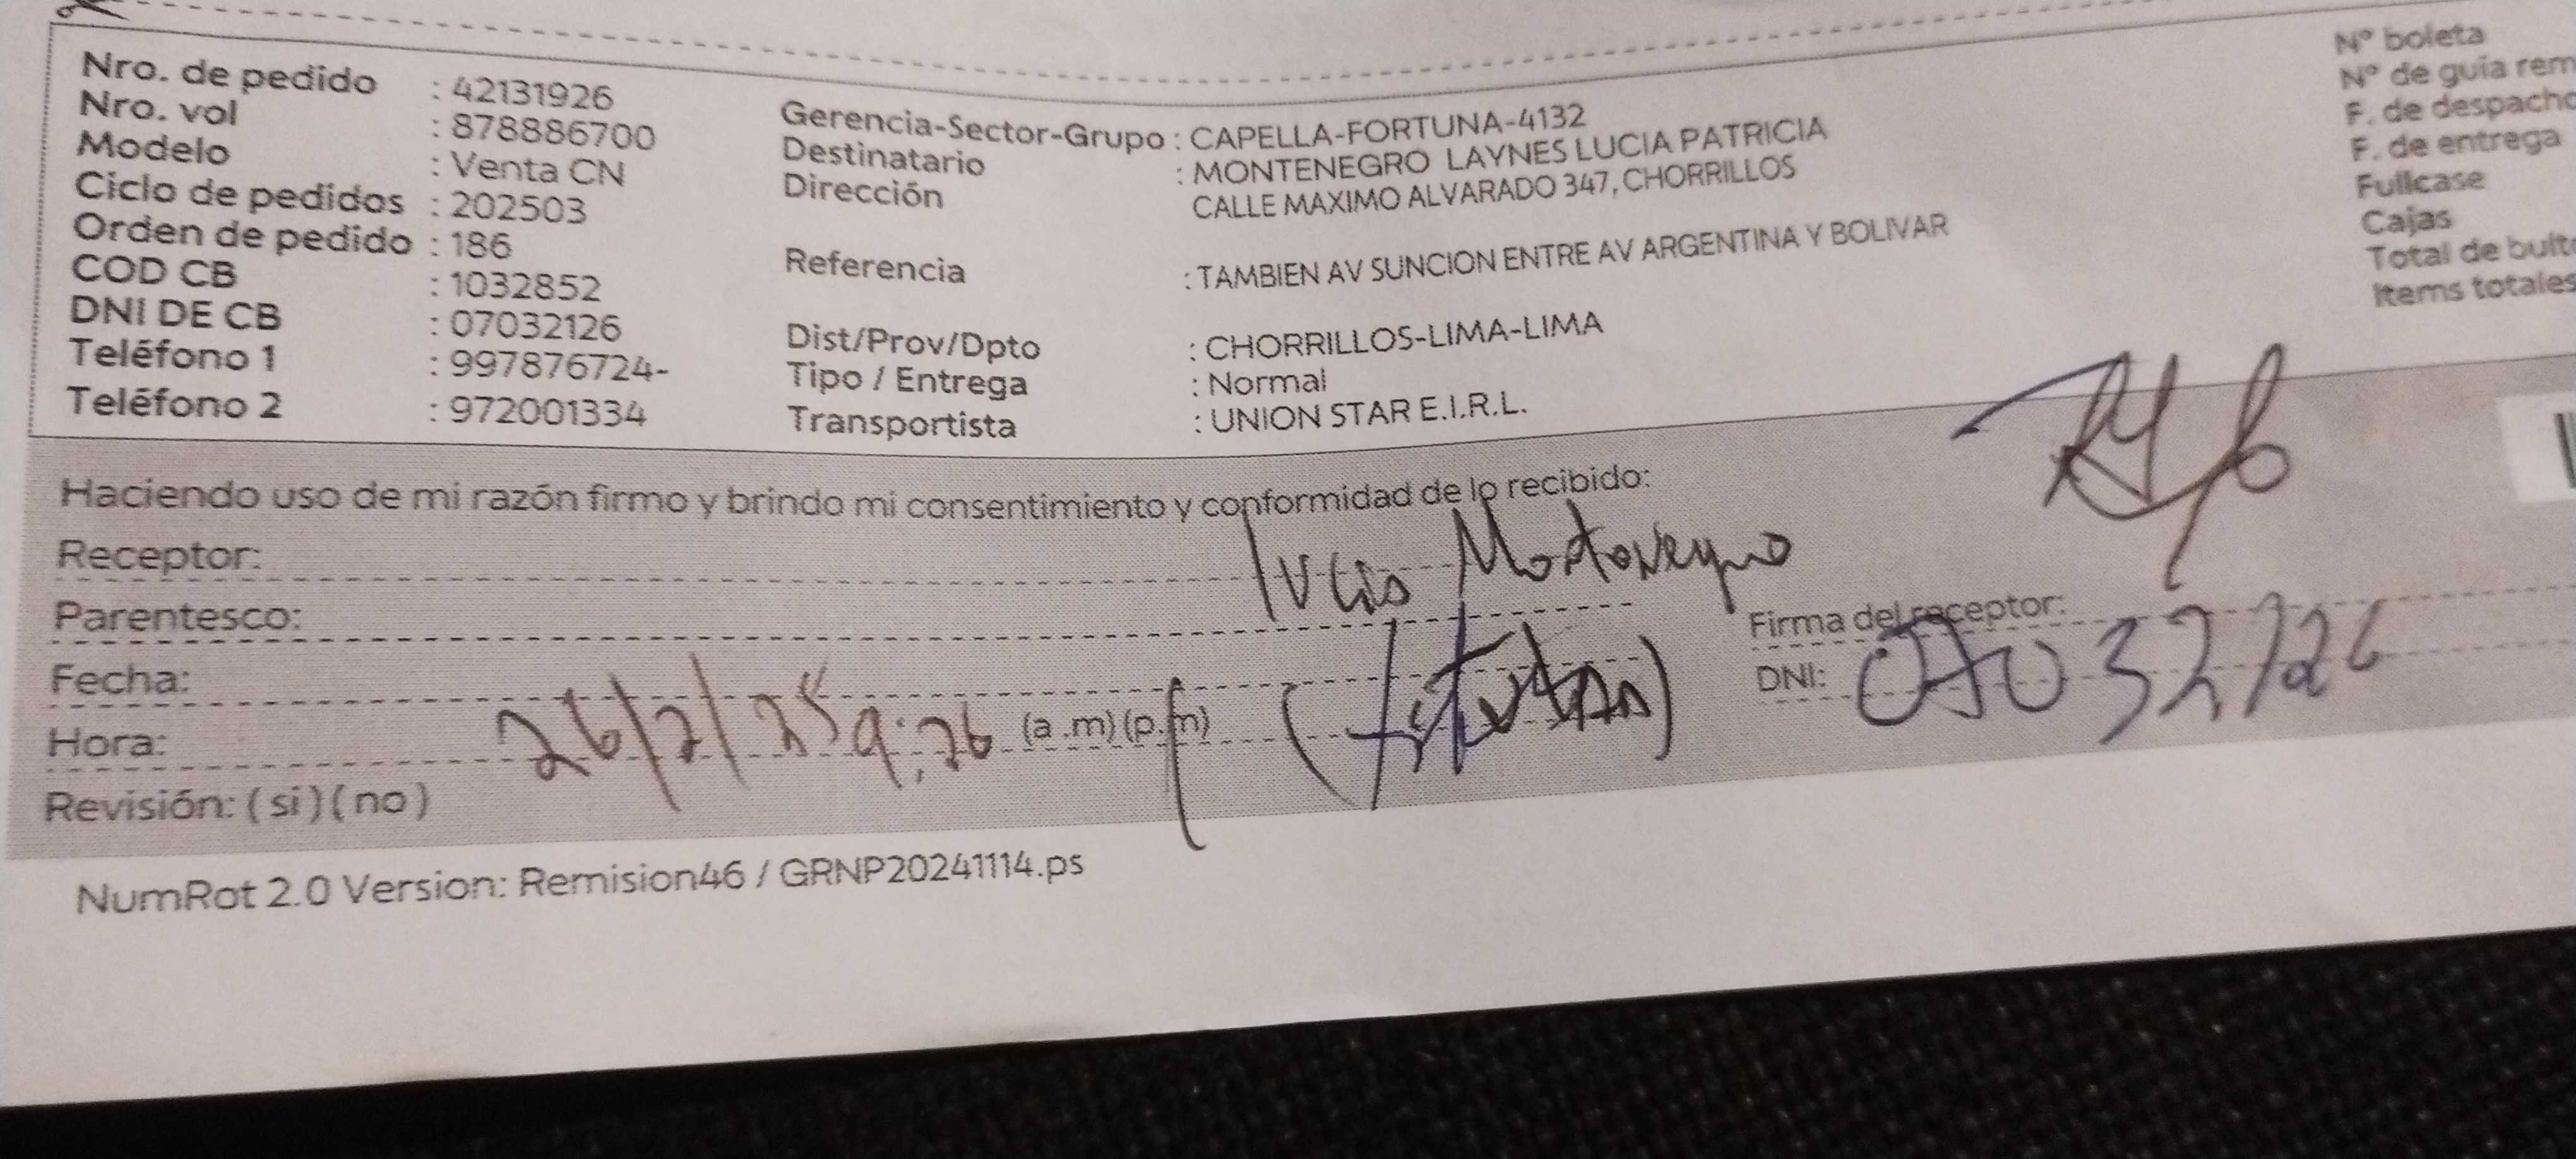 Nro. de pedido : 42131926
Nro. vol : 878886700
Modelo : Venta CN
Ciclo de pedidos : 202503
Orden de pedido : 186
COD CB : 1032852
DNI DE CB : 07032126
Teléfono 1 : 997876724-
Teléfono 2 : 972001334
Gerencia-Sector-Grupo : CAPELLA-FORTUNA-4132
Destinatario : MONTENEGRO LAYNES LUCIA PATRICIA
Dirección CALLE MAXIMO ALVARADO 347, CHORRILLOS
Referencia : TAMBIEN AV SUNCION ENTRE AV ARGENTINA Y BOLIVAR
Dist/Prov/Dpto : CHORRILLOS-LIMA-LIMA
Tipo / Entrega : Normal
Transportista : UNION STAR E.I.R.L.
N° boleta
N° de guía rem
F. de despacho
F. de entrega
Fullcase
Cajas
Total de bult
Items totales
Haciendo uso de mi razón firmo y brindo mi consentimiento y conformidad de lo recibido:
Receptor: Lucia Montenegro
Parentesco:
Firma del receptor:
Fecha: 26/2/25
DNI: 07032126
Hora: 9:26 (a .m) (p.m)
Revisión: ( si ) ( no )
NumRot 2.0 Version: Remision46 / GRNP20241114.ps